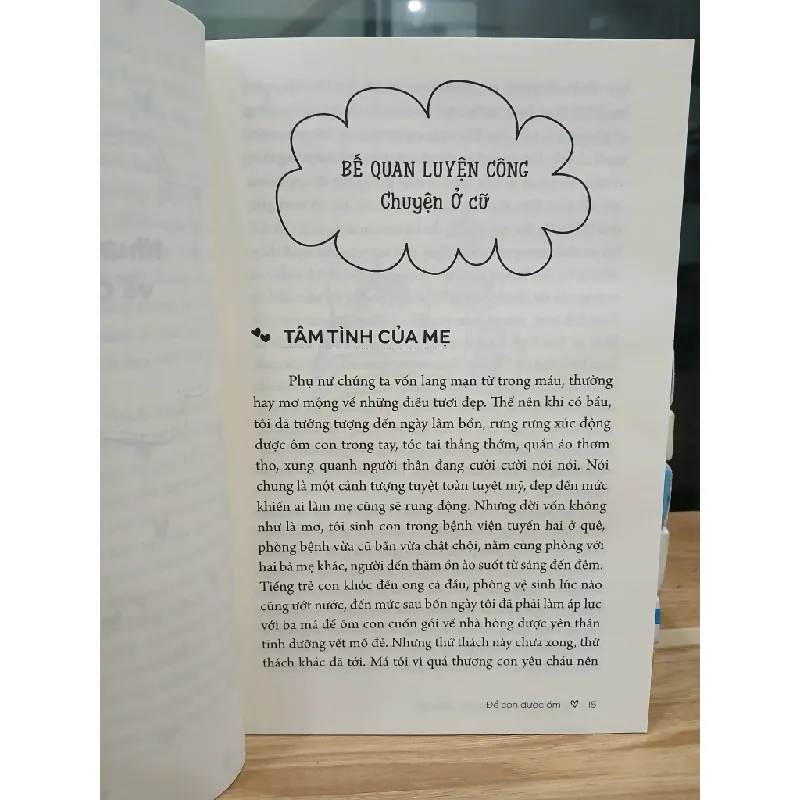 BẾ QUAN LUYỆN CÔNG
Chuyện Ở cữ
TÂM TÌNH CỦA MẸ
Phụ nữ chúng ta vốn lang mạn từ trong máu, thường
hay mơ mộng về những điều tươi đẹp. Thế nên khi có bầu,
tôi đã tưởng tượng đến ngày lâm bồn, rưng rưng xúc động
được ôm con trong tay, tóc tai thẳng thớm, quần áo thơm
tho, xung quanh người thân đang cười cười nói nói. Nói
chung là một cảnh tượng tuyệt toàn tuyệt mỹ, đẹp đến mức
khiến ai làm mẹ cũng sẽ rung động. Nhưng đời vốn không
như là mơ, tôi sinh con trong bệnh viện tuyến hai ở quê,
phòng bệnh vừa cũ bẩn vừa chật chội, nằm cùng phòng với
hai bà mẹ khác, người đến thăm ồn ào suốt từ sáng đến đêm.
Tiếng trẻ con khóc đến ong cả đầu, phòng vệ sinh lúc nào
cũng ướt nước, đến mức sau bốn ngày tôi đã phải làm áp lực
với ba má để ôm con cuốn gói về nhà hòng được yên thân
tĩnh dưỡng vết mổ đẻ. Nhưng thử thách này chưa xong, thử
thách khác đã tới. Má tôi vì quá thương con yêu cháu nên
Để con được ốm 15
Như
về c